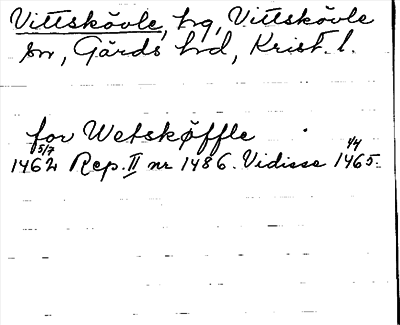 Vittskövle, hg, Vittskövle
sn, Gärds hd, Krist. l.
for Wetskøffle
1462 5/7 Rep. II nr 1486. Vidisse 1465 1/4.